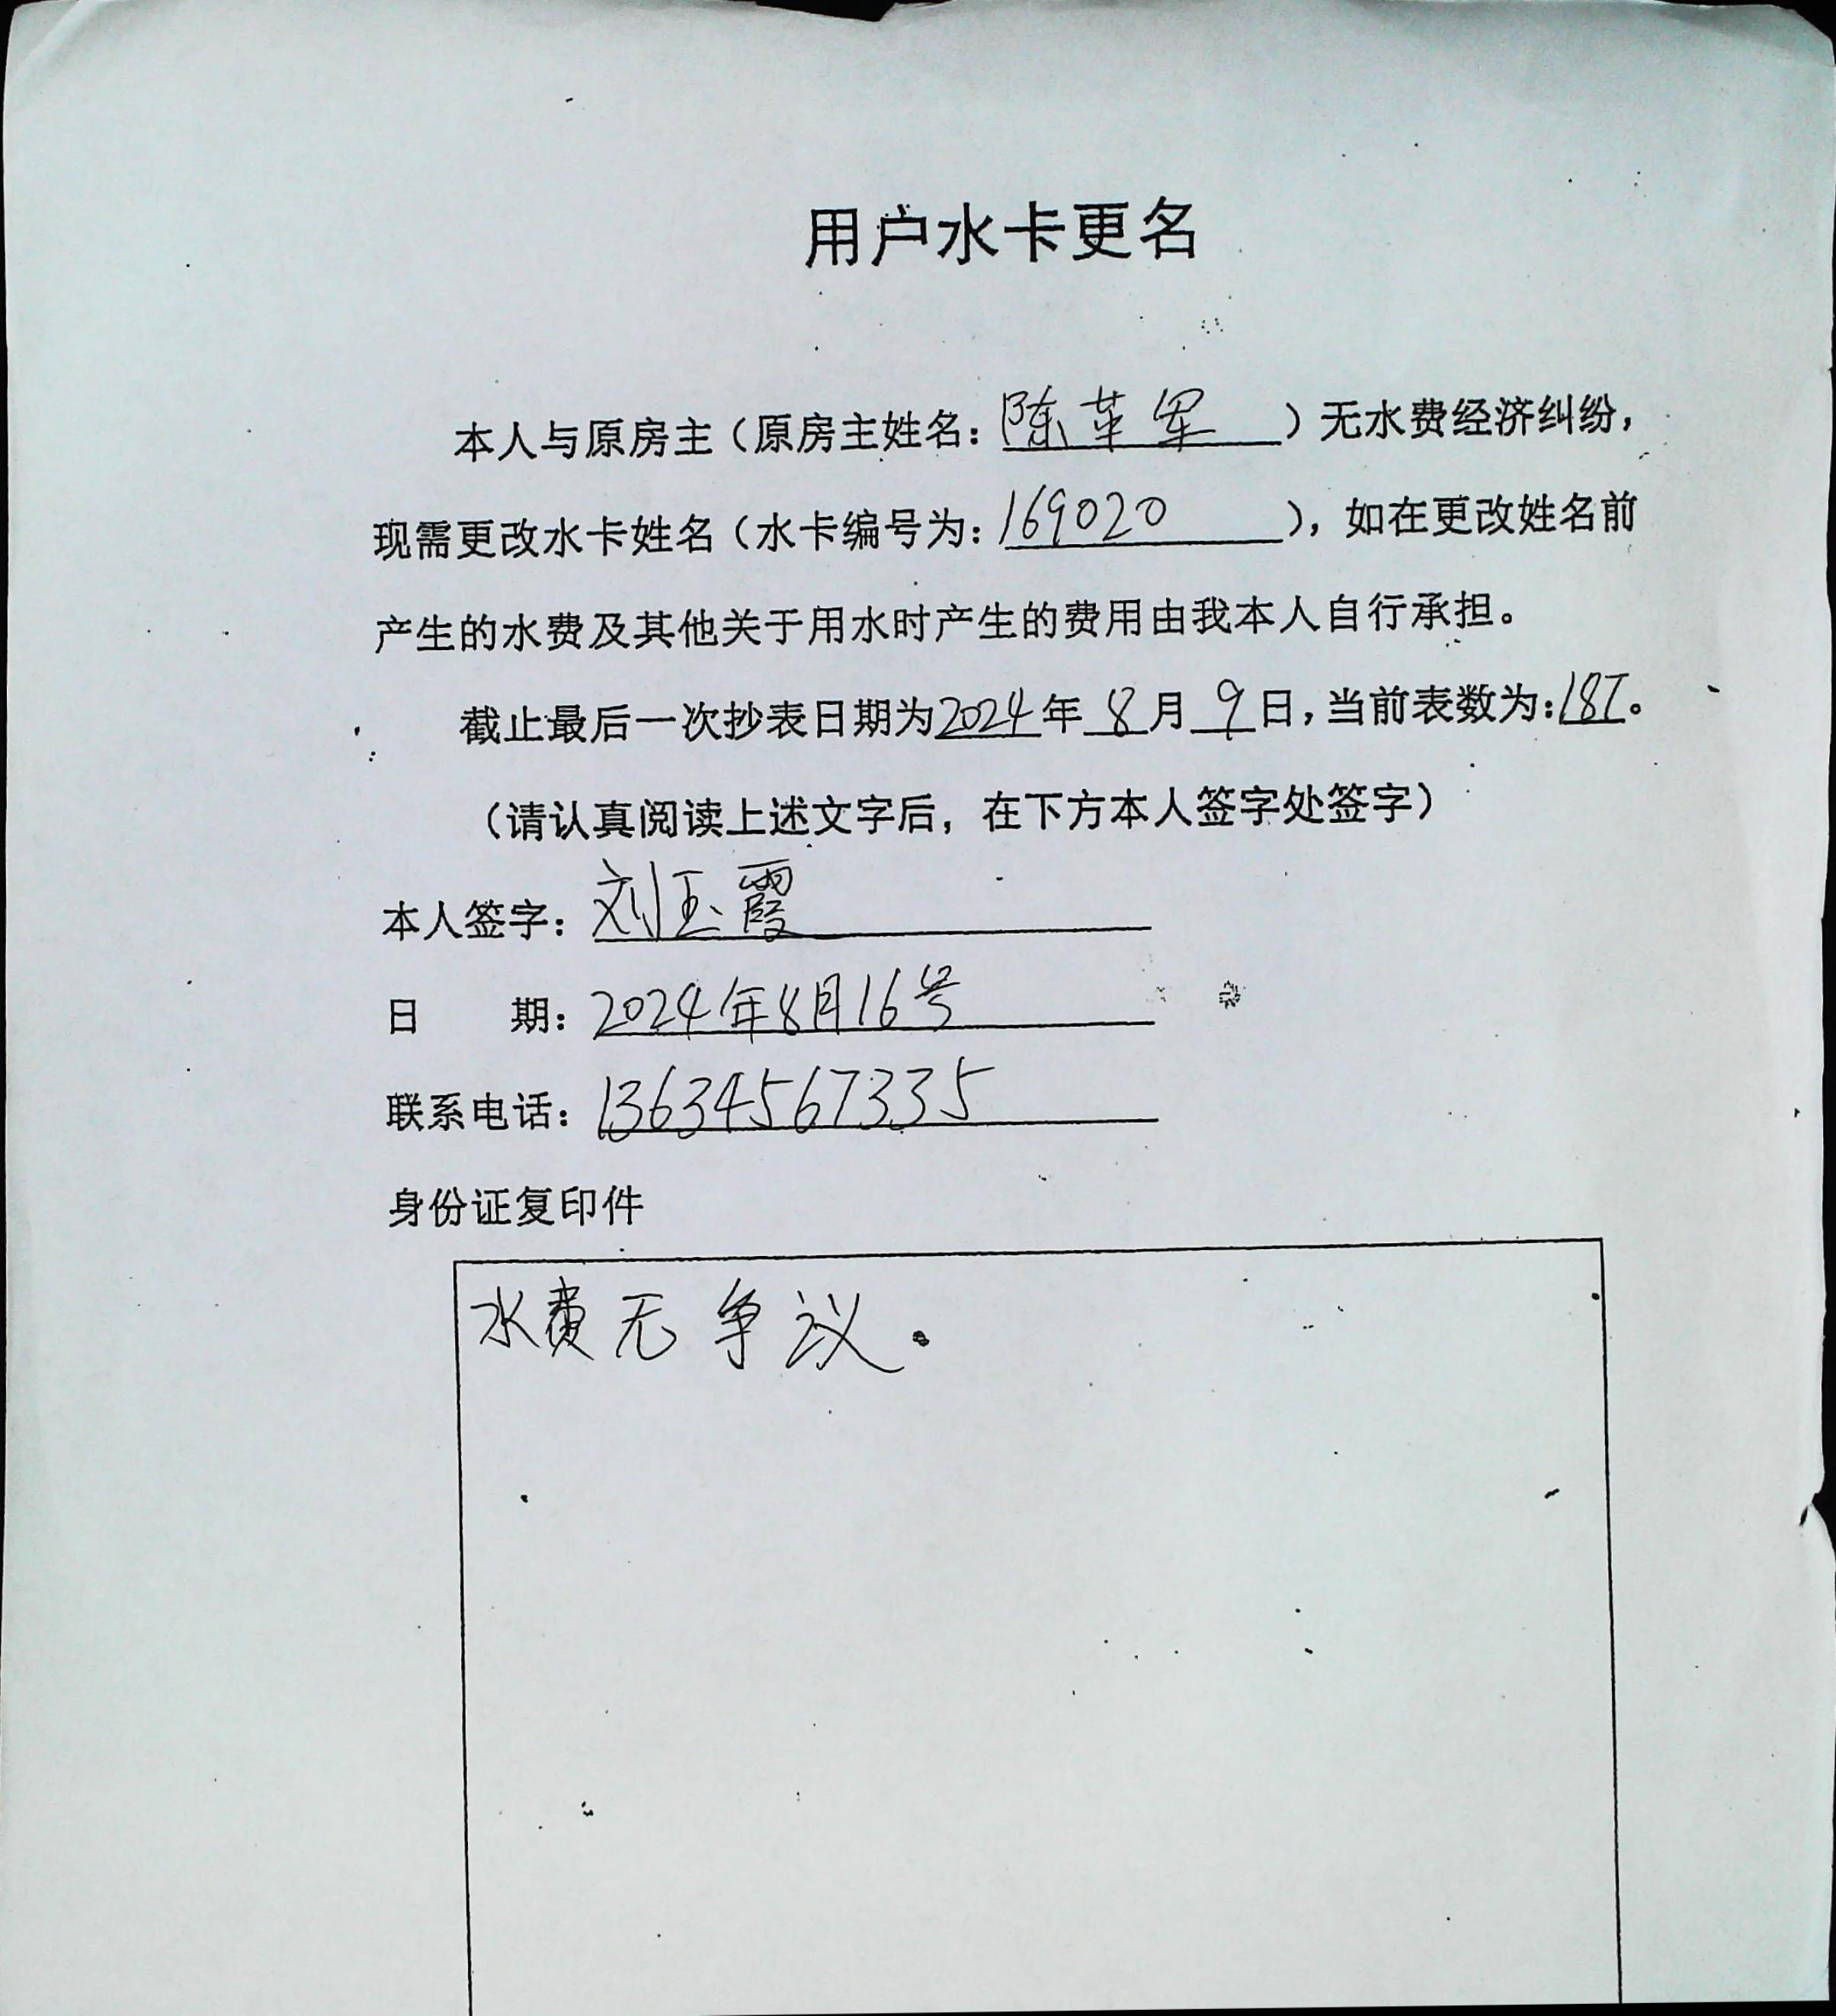 用户水卡更名
本人与原房主（原房主姓名：陈革军）无水费经济纠纷，
现需更改水卡姓名（水卡编号为：169020），如在更改姓名前
产生的水费及其他关于用水时产生的费用由我本人自行承担。
截止最后一次抄表日期为2024年8月9日，当前表数为：187。
（请认真阅读上述文字后，在下方本人签字处签字）
本人签字：刘玉霞
日 期：2024年8月16号
联系电话：13634567335
身份证复印件
水费无争议。